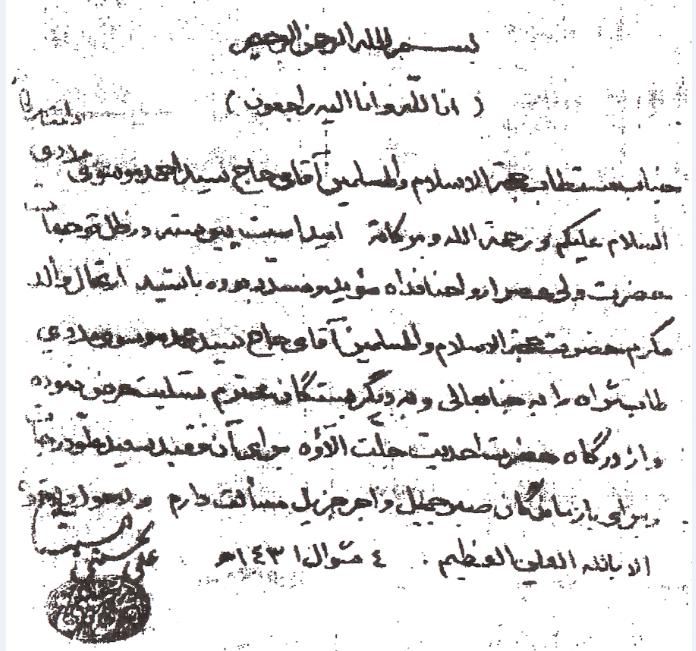 بسم الله الرحمن الرحیم
( انا لله وانا الیه راجعون )
جناب مستطاب حجة الاسلام والمسلمین آقای حاج سید احمد موسوی
السلام علیکم ورحمة الله وبرکاته امید است پیوسته در ظل توجهات
حضرت ولی عصر ارواحنا فداه مؤید ومسدد بوده باشید ارتحال والد
مکرم حضرت حجة الاسلام والمسلمین آقای حاج سید محمد موسوی
طاب ثراه را به جنابعالی وبه دیگر بستگان محترم تسلیت عرض نموده
واز درگاه حضرت احدیت جلت آلاؤه برای آن فقید سعید علو درجات
وبرای بازماندگان صبر جمیل واجر جزیل مسألت دارم ولاحول ولاقوة
الا بالله العلی العظیم . ٤ شوال ١٤٣١هـ